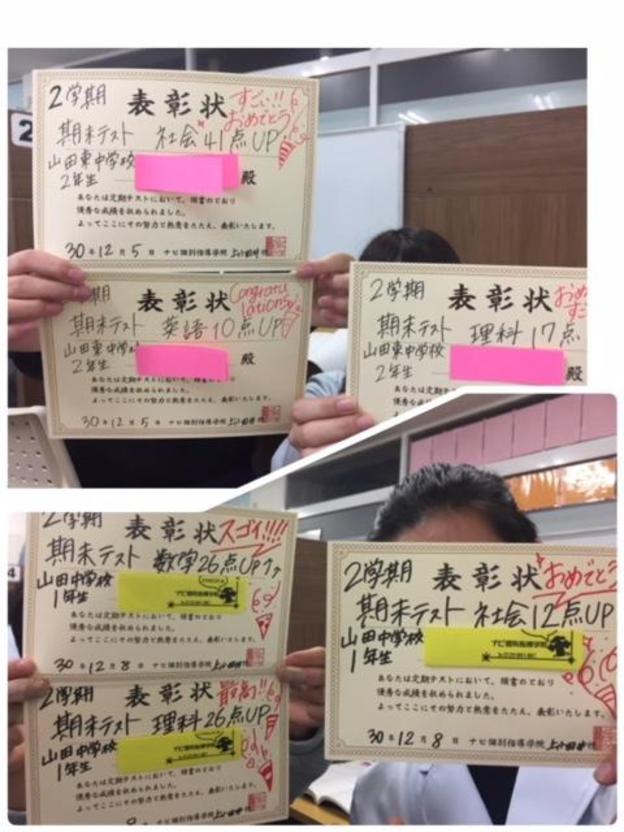 2
2学期 表彰状 すごい!! おめでとう
期末テスト 社会 41点UP
山田東中学校
2年生 殿
あなたは定期テストにおいて、頭書のとおり
優秀な成績を収められました。
よってここにその努力と熱意をたたえ、表彰いたします。
30年12月5日 ナビ個別指導学院
学期 表彰状 Congratulations
期末テスト 英語10点UP
山田東中学校
2年生 殿
あなたは定期テストにおいて、頭書のとおり
優秀な成績を収められました。
よってここにその努力と熱意をたたえ、表彰いたします。
30年12月5日 ナビ個別指導学院
2学期 表彰状
期末テスト 理科17点
山田東中学校
2年生 殿
あなたは定期テストにおいて、頭書の
優秀な成績を収められました。
2学期 表彰状 スゴイ!!!!
期末テスト 数学26点UP
山田中学校
1年生
あなたは定期テストにおいて、頭書のとおり
優秀な成績を収められました。
よってここにその努力と熱意をたたえ、表彰いたします。
30年12月8日 ナビ個別指導学院
2学期 表彰状 最高!!
期末テスト 理科26点UP
山田中学校
1年生
ナビ個別指導学院
あなたは定期テストにおいて、頭書のとおり
優秀な成績を収められました。
よってここにその努力と熱意をたたえ、表彰いたします。
2学期 表彰状 おめでとう
期末テスト 社会12点UP
山田中学校
1年生
ナビ個別指導学院
あなたは定期テストにおいて、頭書のとおり
優秀な成績を収められました。
よってここにその努力と熱意をたたえ、表彰いたします。
30年12月8日 ナビ個別指導学院